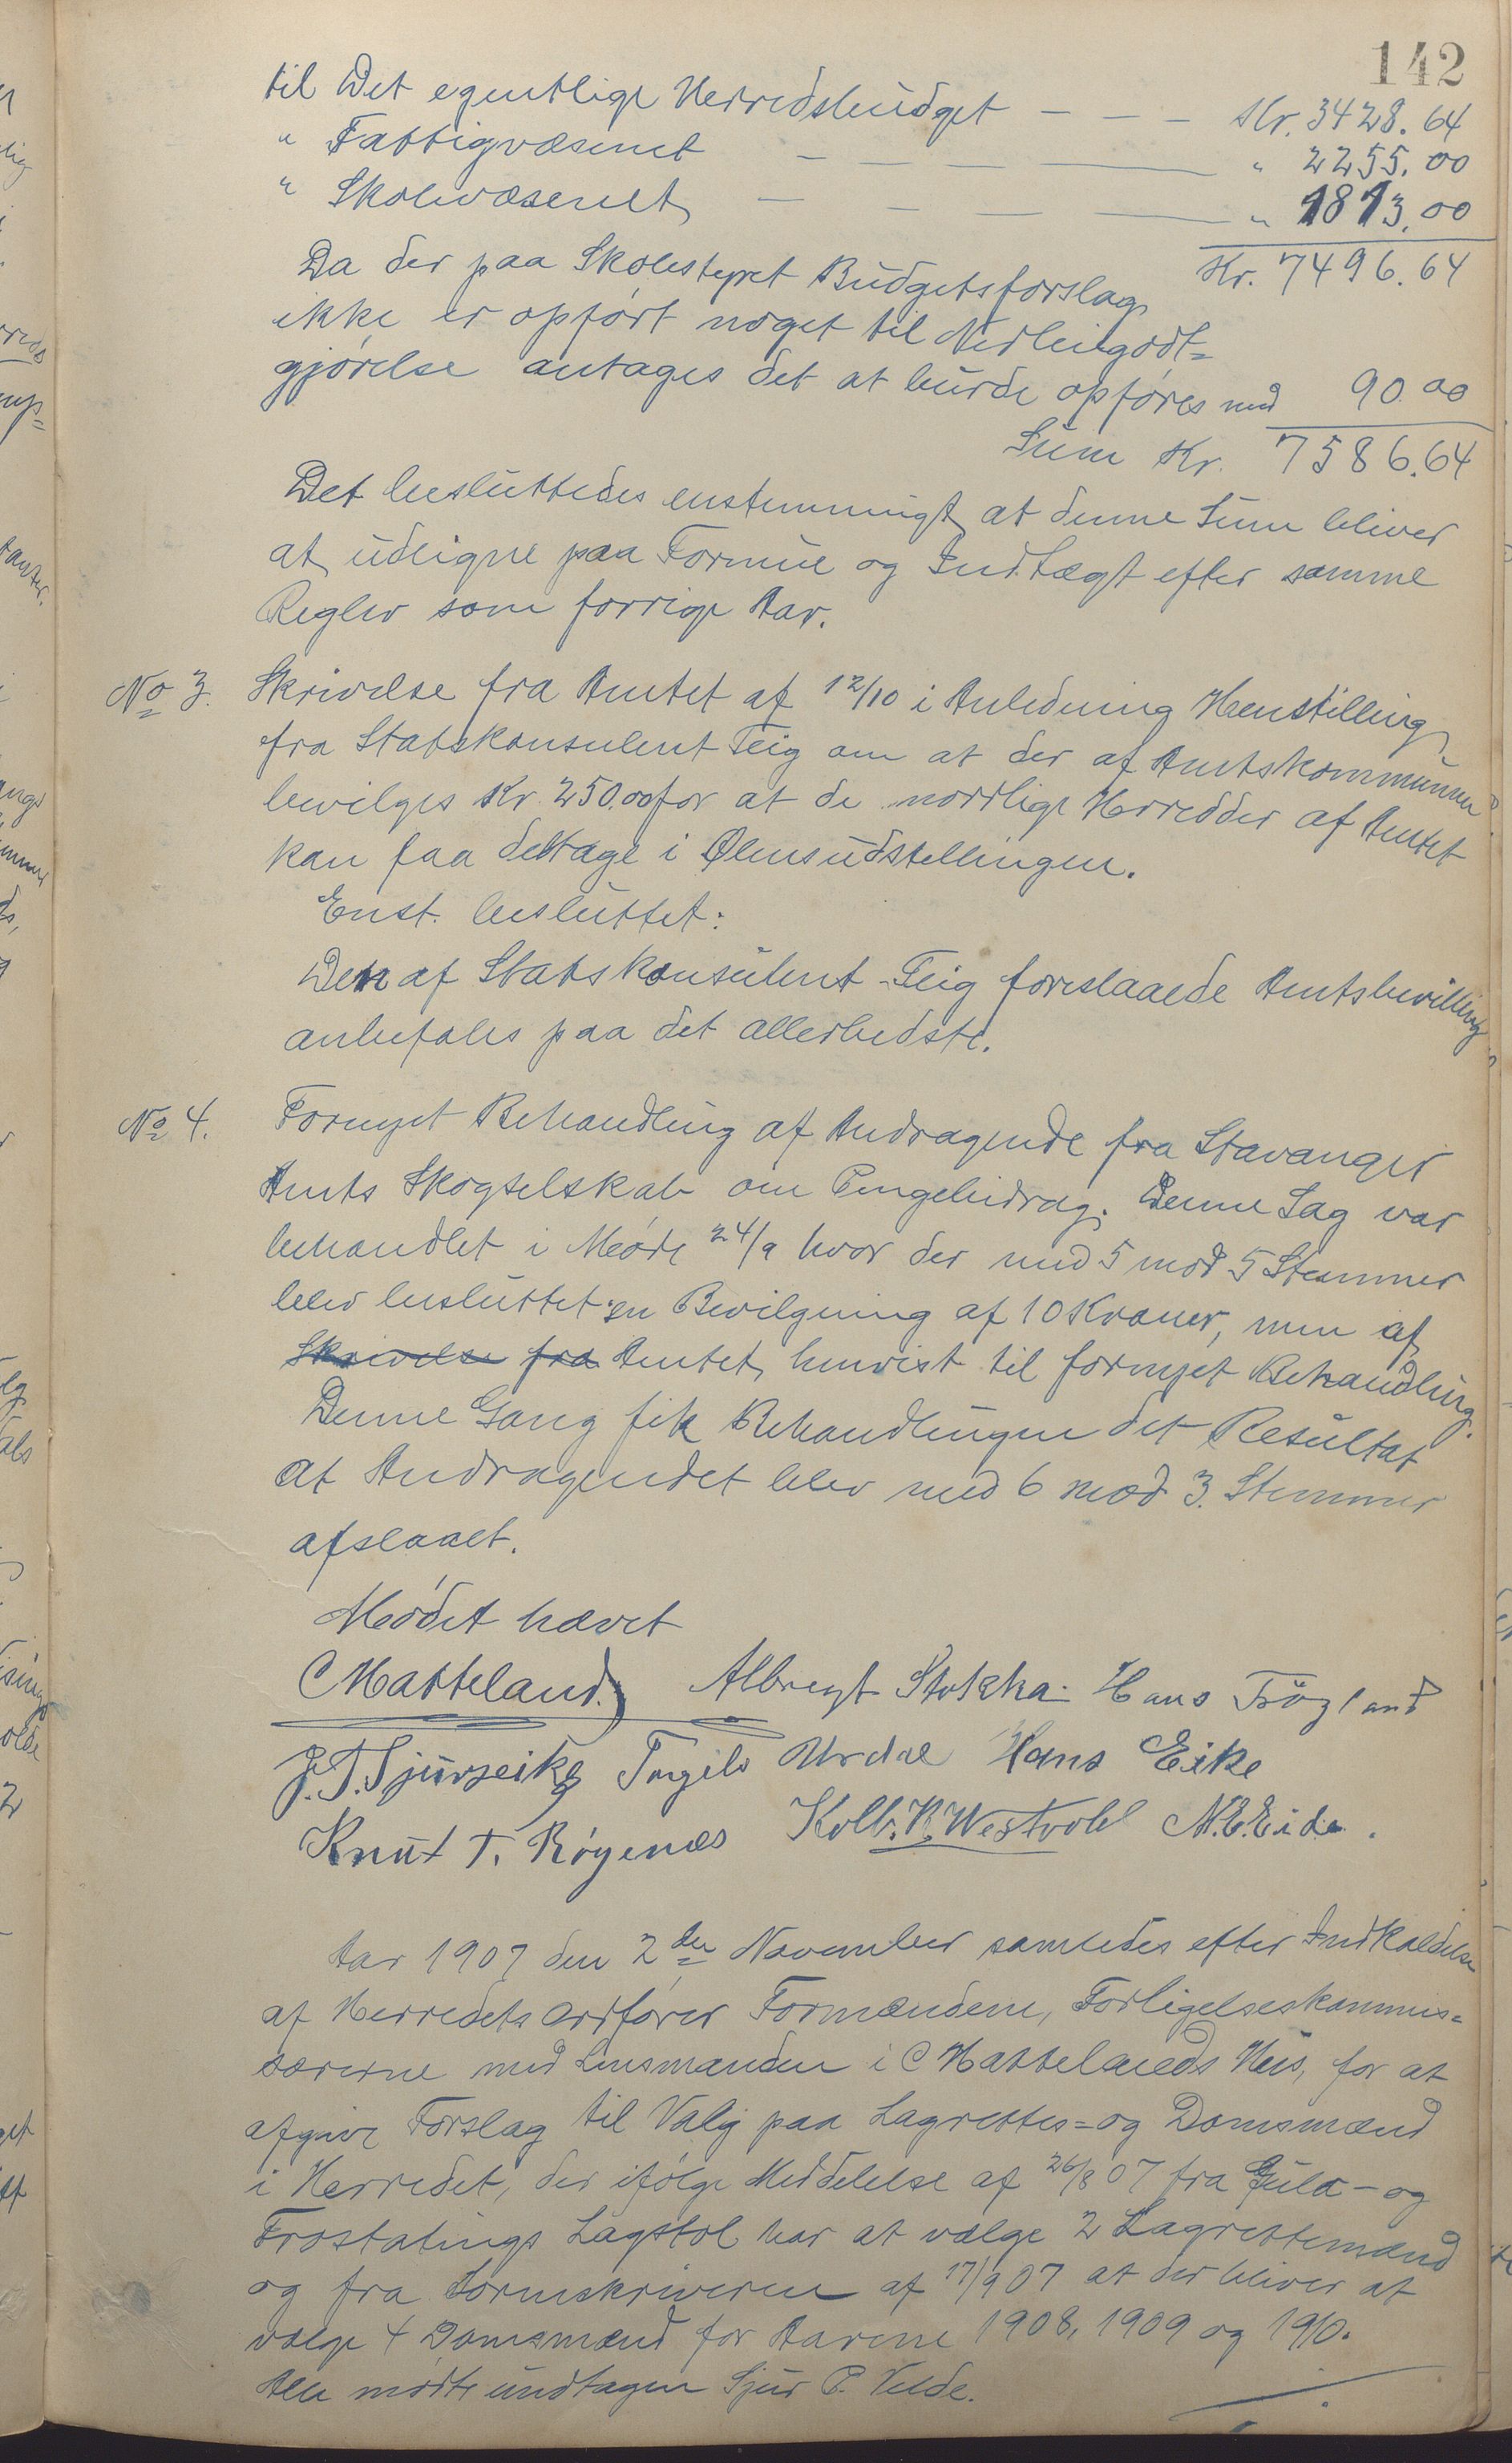 142
til Det egentlige Herredsbudget - - - Kr. 3428.64
" Fattigvæsenet - - - " 2255.00
" Skolevæsenet - - - " 1813.00
Kr. 7496.64
Da der paa Skolestyret Budgetsforslag
ikke er opført noget til Nedleiegodt=
gjørelse antages det at burde opføres med 90.00
Sum Kr. 7586.64
Det besluttedes enstemmigt at denne Sum bliver
at udligne paa Formue og Indtægt efter samme
Regler som forrige Aar.
No 3. Skrivelse fra Amtet af 12/10 i Anledning Henstilling
fra Statskonsulent Teig om at der af Amtskommunen
bevilges Kr. 250.00 for at de nordlige Herredder af Amtet
kan faa deltage i Ølensudstellingen.
Enst. besluttet:
Den af Statskonsulent Teig foreslaaede Amtsbevilling
anbefales paa det allerbedste.
No 4. Fornyet Behandling af Andragende fra Stavanger
Amts Skogselskab om Pengebidrag. Denne Sag var
behandlet i Møde 24/9 hvor der med 5 mod 5 Stemmer
blev besluttet en Bevilgning af 10 Kroner, men af
Skrivelse fra Amtet henvist til fornyet Behandling.
Denne Gang fik Behandlingen det Resultat
at Andragendet blev med 6 mod 3. Stemmer
afslaaet.
Mødet hævet
C Hatteland. Albregt Stokka Hans Trögland
J. T. Sjurseike Torgils Urdal Hans Eike
Knut T. Røgenæs Kolb. K. Westvold N. E. Eide.
Aar 1907 den 2den November samledes efter Indkaldelse
af Herredets Ordfører Formændene, Forligelseskommis=
særerne med Lensmanden i C Hattelands Hus, for at
afgive Forslag til Valg paa Lagrettes= og Domsmænd
i Herredet, der ifølge Meddelelse af 26/8 07 fra Gula- og
Frostatings Lagstol har at vælge 2 Lagrettemænd
og fra Sorenskriveren af 17/9 07 at der bliver at
vælge 4 Domsmænd for Aarene 1908, 1909 og 1910.
Alle mødte undtagen Sjur P. Velde.